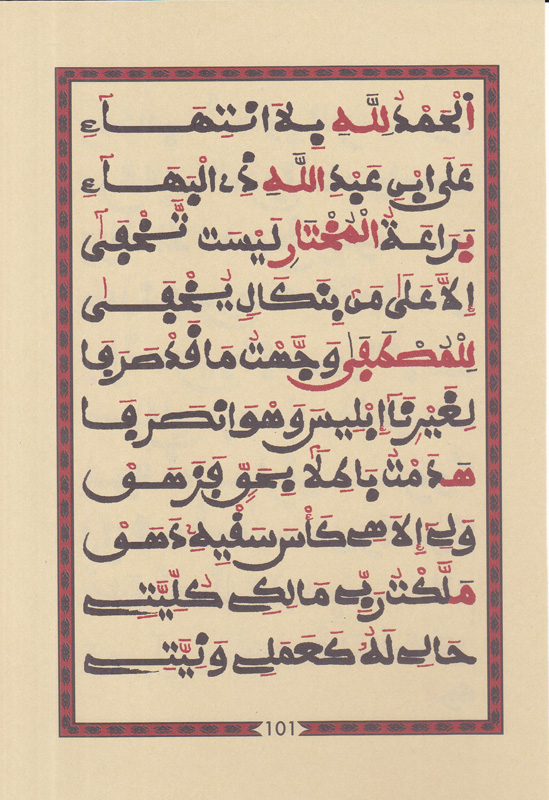 أَلْحَمْدُ لِلَّهِ بِلَا انْتِهَآءِ
عَلَى ابْنِ عَبْدِ اللَّهِ ذِي الْبَهَآءِ
بَرَاعَةُ الْمُخْتَارِ لَيْسَت تَّخْفَى
إِلَّا عَلَى مَن بِنَكَالٍ يُخْفَى
لِلْمُصْطَفَى وَجَّهْتُ مَا قَدْ صَرَفَا
لِغَيْرِنَا إِبْلِيسَ وَهْوَ انْصَرَفَا
هَدَمْتُ بَاطِلًا بِحَقٍّ فَزَهَقْ
وَلِي إِلَاهِي كَأْسَ سَقْيِهِ دَهَقْ
مَلَّكْتُ رَبِّي مَالِكِي كُلِّيَّتِي
حَالِي لَهُ كَعَمَلِي وَنِيَّتِي
101